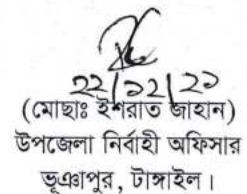 ২২/১২/২১
(মোছাঃ ইশরাত জাহান)
উপজেলা নির্বাহী অফিসার
ভূঞাপুর, টাঙ্গাইল।